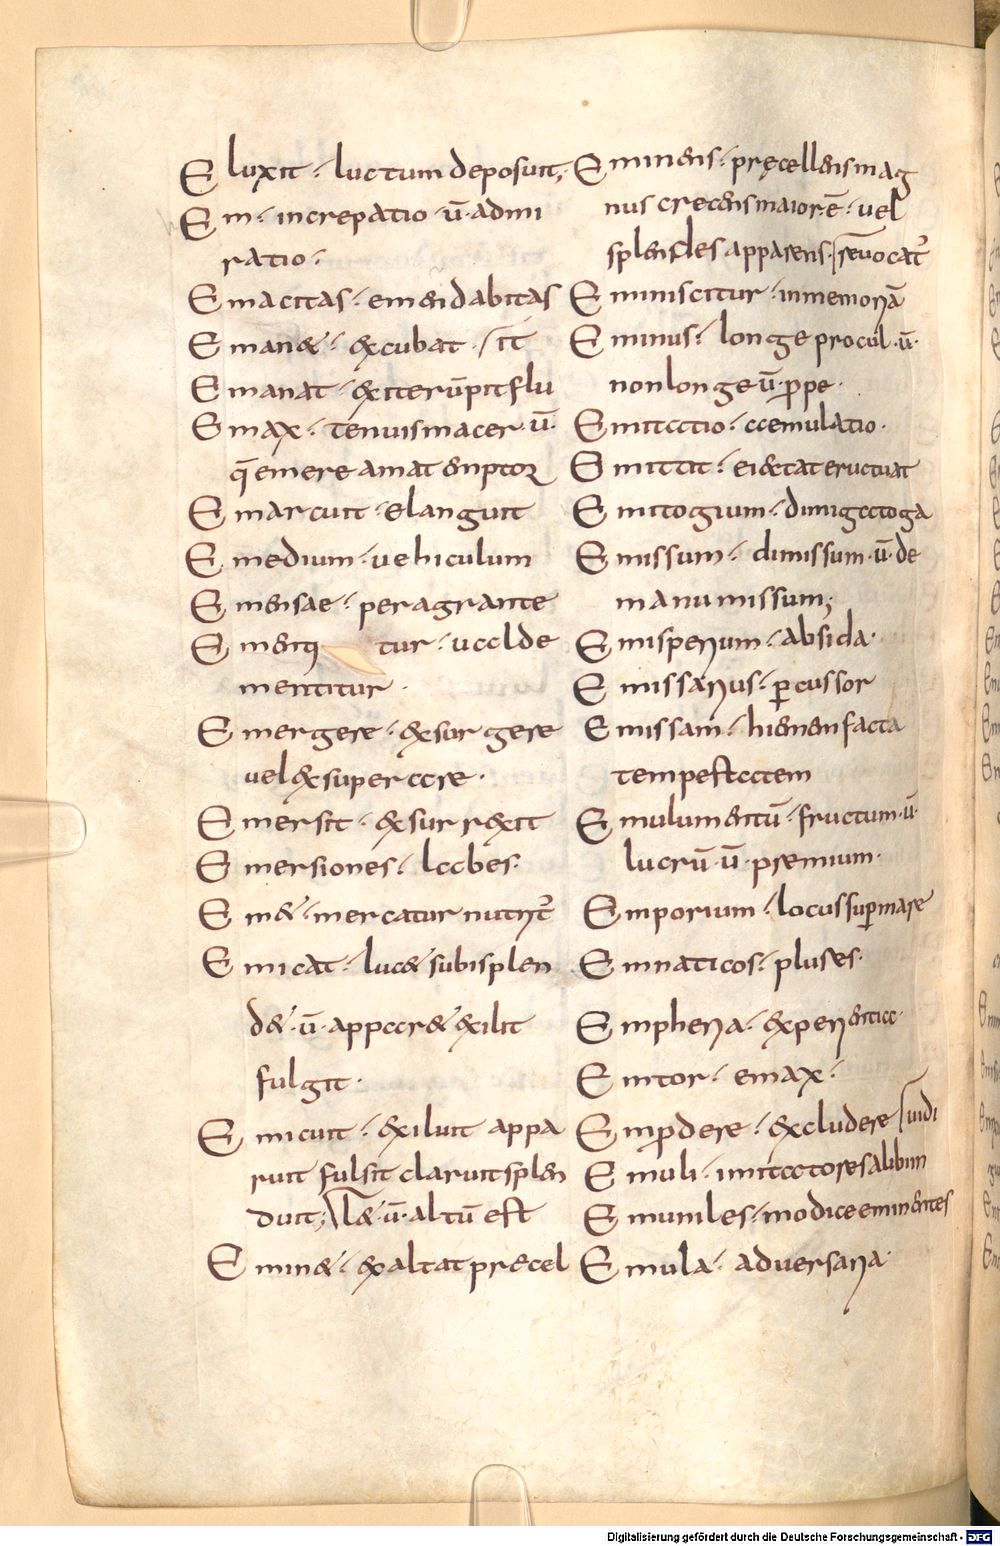 Eluxit· luctum deposuit;
Em· increpatio ·ū· admi
ratio·
Emacitas· emendabitas
Emanet· excubat · it
Emanat· exit erūpit flu
Emax· tenuis macer ·ū·
q̄ emere amat emptor
Emarcuit· elanguit
Emedium· uehiculum
Emensae· peragrante
Ementi tur· uel de
mentitur ·
Emergere· exsurgere
uel exsuperare·
Emersit· exsurrexit
Emersiones· labes·
Emet· mercatur nutrit̄
Emicat· lucet subisplen
det ·ū· apparet exilit
fulgit·
Emicuit· exiluit appa
ruit fulsit claruit splen
duit; let ·ū· altū est
Eminet· exaltat precel
Eminens· pręcellens mag
nus crecens maior·ē· uel
splendes apparens· reuocat̄
Eminiscitur· in memoriā
Eminus· longe procul ·ū·
non longe ·ū· ꝓpe·
Emitatio· aemulatio·
Emittit· eiectat eructuat
Emitogium· dimigectoga
Emissum· dimissum ·ū· de
manu missum;
Emisperium· absida·
Emissarius· ꝑcussor
Emissam· hienen facta
tempestatem
Emulumentū· fructum ·ū·
lucrū ·ū· premium·
Emporium· locus suꝑ mare
Emnaticos· pluses·
Empheria· experientia·
Emtor· emax·
Emꝑdere· excludere uidi
Emuli· imitatores alibim
Emuniles· modice eminentes
Emula· aduersaria·
Digitalisierung gefördert durch die Deutsche Forschungsgemeinschaft - DFG